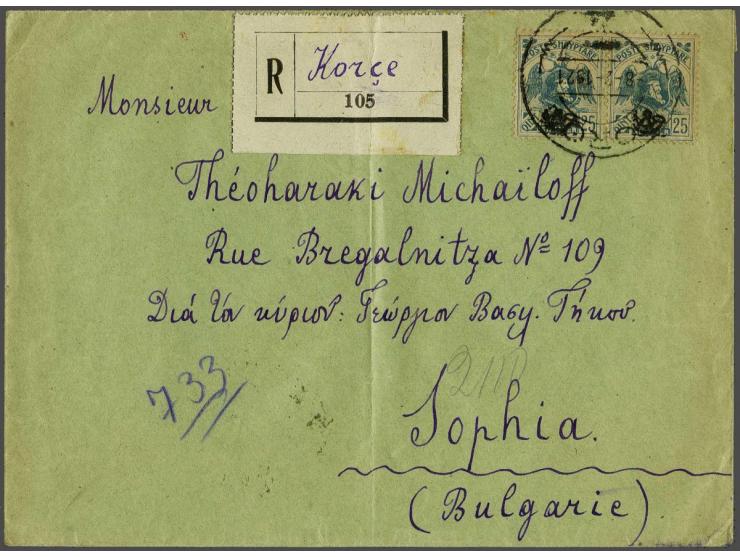 R Korçe
105
POSTE SHQYPTARE POSTE SHQYPTARE
25 25
Monsieur
Théoharaki Michaïloff
Rue Bregalnitza Nº 109
Διά τον κύριον: Γεώργιον Βασιλ. Τήκου.
733
Sophia.
(Bulgarie)